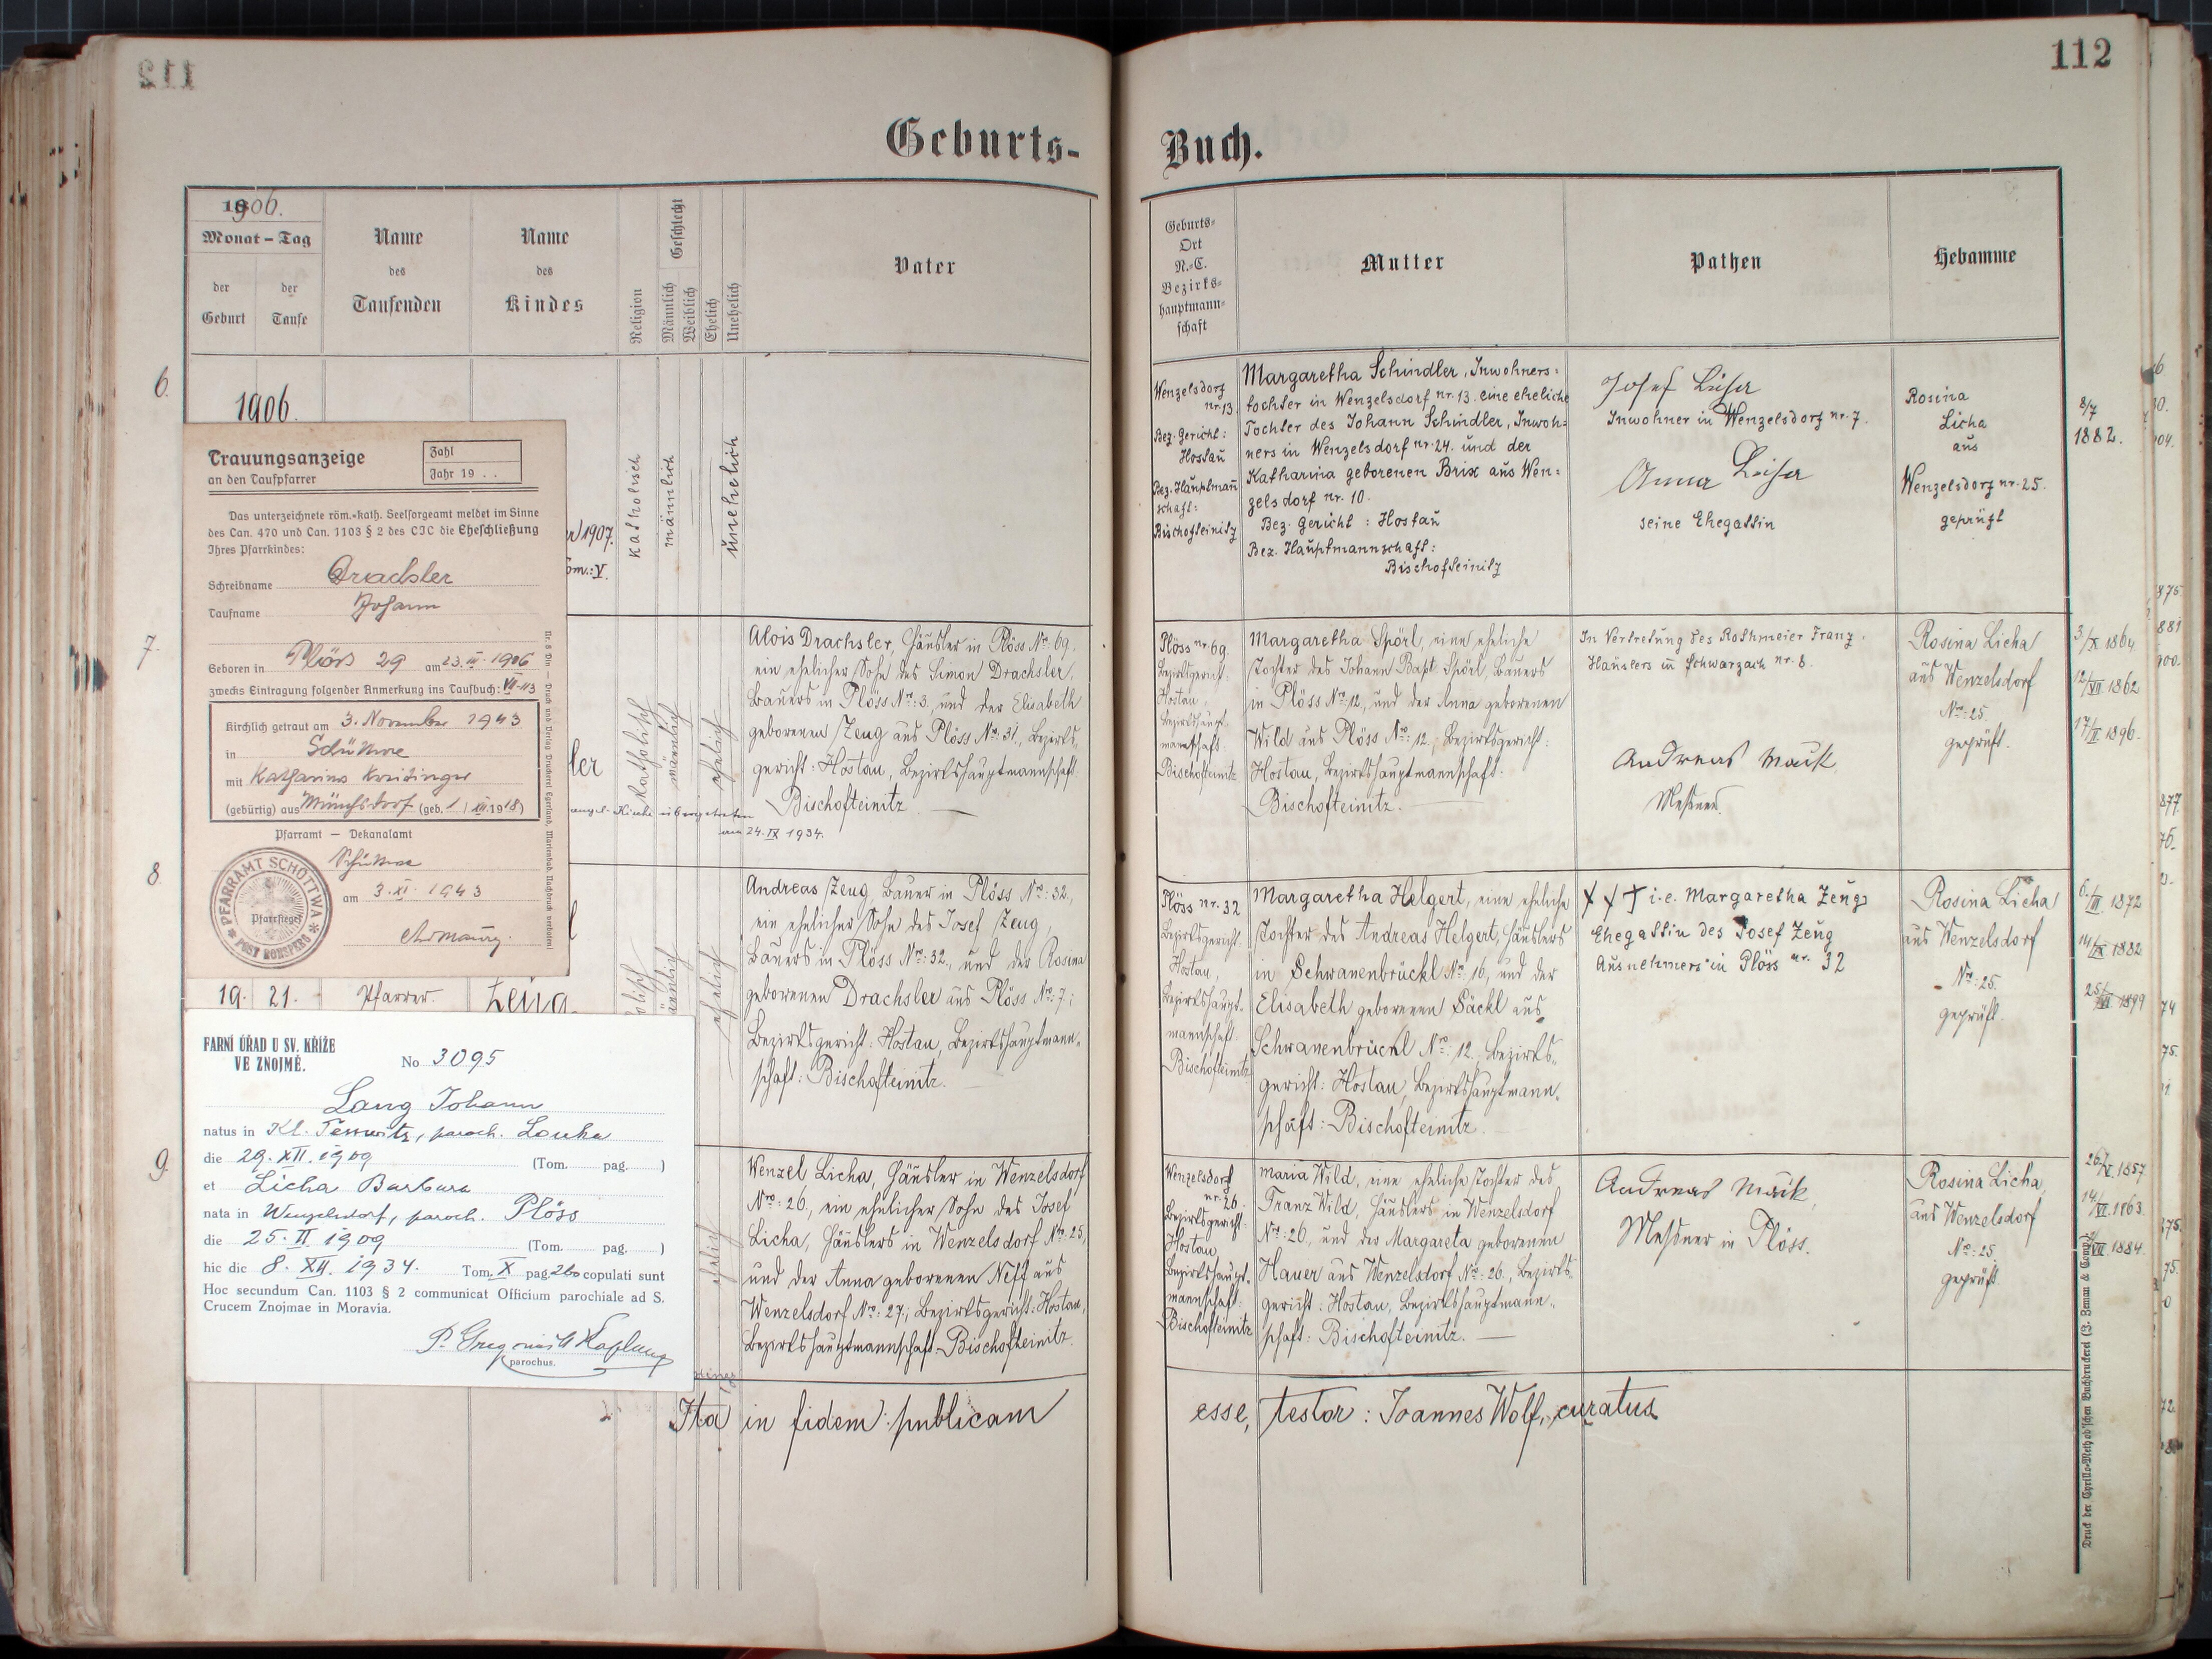 112
Geburts-
1906.
Monat - Tag
der
Geburt
der
Taufe
Name
des
Taufenden
Name
des
Kindes
Religion
Geschlecht
Männlich
Weiblich
Ehelich
Unehelich
Vater
6.
1906.
1907.
Tom.: V.
katholisch
männlich
unehelich
Trauungsanzeige
an den Taufpfarrer
Zahl
Jahr 19 . .
Das unterzeichnete röm.-kath. Seelsorgeamt meldet im Sinne
des Can. 470 und Can. 1103 § 2 des CIC die Eheschließung
Ihres Pfarrkindes:
Schreibname Drachsler
Taufname Johann
Geboren in Plöss 29 am 23. III. 1906
zwecks Eintragung folgender Anmerkung ins Taufbuch: VII-113
Kirchlich getraut am 3. November 1943
in Schüttwa
mit Katharina Kreitinger
(gebürtig) aus Münchsdorf (geb. 1. XII. 1918)
Pfarramt — Dekanalamt
Schüttwa
am 3. XI. 1943
PFARRAMT SCHÜTTWA
Pfarrsiegel
POST RONSPERG
7.
ler
katholisch
männlich
ehelich
Alois Drachsler, Häusler in Plöss Nro. 69.
ein ehelicher Sohn des Simon Drachsler,
Bauers in Plöss Nro: 3., und der Elisabeth
geborenen Zeug aus Plöss Nro: 31., Bezirks-
gericht: Hostau, Bezirkshauptmannschaft:
Bischofteinitz
Kirche übergetreten
am 24. IX 1934.
8.
ehelich
Andreas Zeug, Bauer in Plöss Nro: 32.,
ein ehelicher Sohn des Josef Zeug,
Bauers in Plöss Nro: 32., und der Rosina
geborenen Drachsler aus Plöss Nro: 7;
Bezirksgericht: Hostau, Bezirkshauptmann-
schaft: Bischofteinitz.
19. 21. Pfarrer. Zeug.
FARNÍ ÚŘAD U SV. KŘÍŽE
VE ZNOJMĚ.
No 3095
Lang Johann
natus in Kl. Tesswitz, paroch. Louka
die 29. XII. 1909 (Tom. pag. )
et Licha Barbara
nata in Wenzelsdorf, paroch. Plöss
die 25. II 1909 (Tom. pag. )
hic die 8. XII. 1934. Tom. X pag. 260 copulati sunt
Hoc secundum Can. 1103 § 2 communicat Officium parochiale ad S.
Crucem Znojmae in Moravia.
parochus.
9.
ehelich
Wenzel Licha, Häusler in Wenzelsdorf
Nro: 26., ein ehelicher Sohn des Josef
Licha, Häuslers in Wenzelsdorf Nro: 25,
und der Anna geborenen Neff aus
Wenzelsdorf Nro: 27; Bezirksgericht: Hostau,
Bezirkshauptmannschaft: Bischofteinitz.
Ita in fidem publicam
112
Buch.
Geburts-
Ort
N.-C.
Bezirks-
hauptmann-
schaft
Mutter
Pathen
Hebamme
Wenzelsdorf
nr. 13.
Bez. Gericht:
Hostau
Bez. Hauptmann
schaft:
Bischofteinitz
Margaretha Schindler, Inwohners=
tochter in Wenzelsdorf nr. 13. eine eheliche
Tochter des Johann Schindler, Inwoh=
ners in Wenzelsdorf nr. 24. und der
Katharina geborenen Brix aus Wen=
zelsdorf nr. 10.
Bez. Gericht: Hostau
Bez. Hauptmannschaft:
Bischofteinitz
Josef
Inwohner in Wenzelsdorf nr. 7.
Anna
seine Ehegattin
Rosina
Licha
aus
Wenzelsdorf nr. 25.
geprüft
8/7
1882.
Plöss nr. 69.
Bezirksgericht:
Hostau,
Bezirkshaupt-
mannschaft:
Bischofteinitz
Margaretha Spörl, eine eheliche
Tochter des Johann Bapt. Spörl, Bauers
in Plöss Nro: 12., und der Anna geborenen
Wild aus Plöss Nro: 12.; Bezirksgericht:
Hostau, Bezirkshauptmannschaft:
Bischofteinitz.
In Vertretung des Rothmeier Franz,
Häuslers in Schwarzach nr. 8.
Andreas Mauk
Messner.
Rosina Licha
aus Wenzelsdorf
Nro: 25.
geprüft.
3/X 1864.
12/VII 1862
17/II 1896.
Plöss nr. 32
Bezirksgericht:
Hostau,
Bezirkshaupt-
mannschaft:
Bischofteinitz
Margaretha Helgert, eine eheliche
Tochter des Andreas Helgert, Häuslers
in Schwanenbrückl Nro: 16, und der
Elisabeth geborenen Säckl aus
Schwanenbrückl Nro: 12.; Bezirks-
gericht: Hostau, Bezirkshauptmann-
schaft: Bischofteinitz.
† † † i.e. Margaretha Zeug
Ehegattin des Josef Zeug
Ausnehmers in Plöss nr. 32
Rosina Licha
aus Wenzelsdorf
Nro: 25.
geprüft.
6/III. 1872
14/IX 1882
1899
Wenzelsdorf
nr. 26.
Bezirksgericht:
Hostau
Bezirkshaupt-
mannschaft:
Bischofteinitz
Maria Wild, eine eheliche Tochter des
Franz Wild, Häuslers in Wenzelsdorf
Nro: 26, und der Margareta geborenen
Hauer aus Wenzelsdorf Nro: 26., Bezirks-
gericht: Hostau, Bezirkshauptmann-
schaft: Bischofteinitz.
Andreas Mauk,
Messner in Plöss.
Rosina Licha,
aus Wenzelsdorf
Nro: 25.
geprüft.
1857.
14/VI. 1863.
1884.
esse, testor: Joannes Wolf, curatus
Druck der Cyrillo-Method'schen Buchdruckerei (J. Zeman & Comp.)